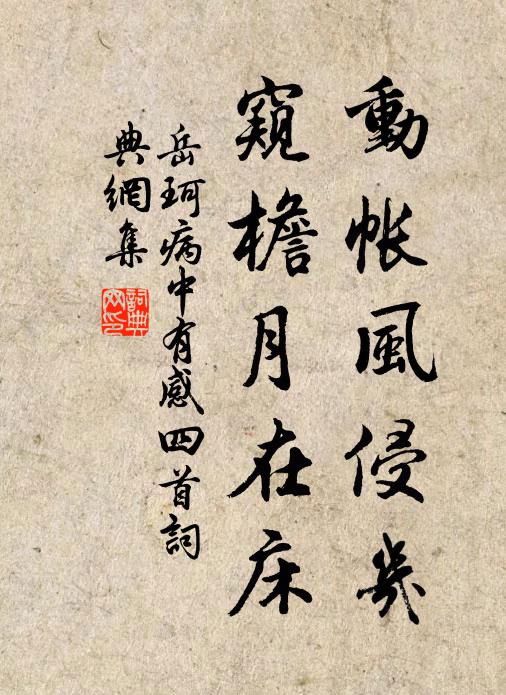 動帳風侵幾
窺檐月在床
岳珂病中有感四首詞
典網集
詞典
网印